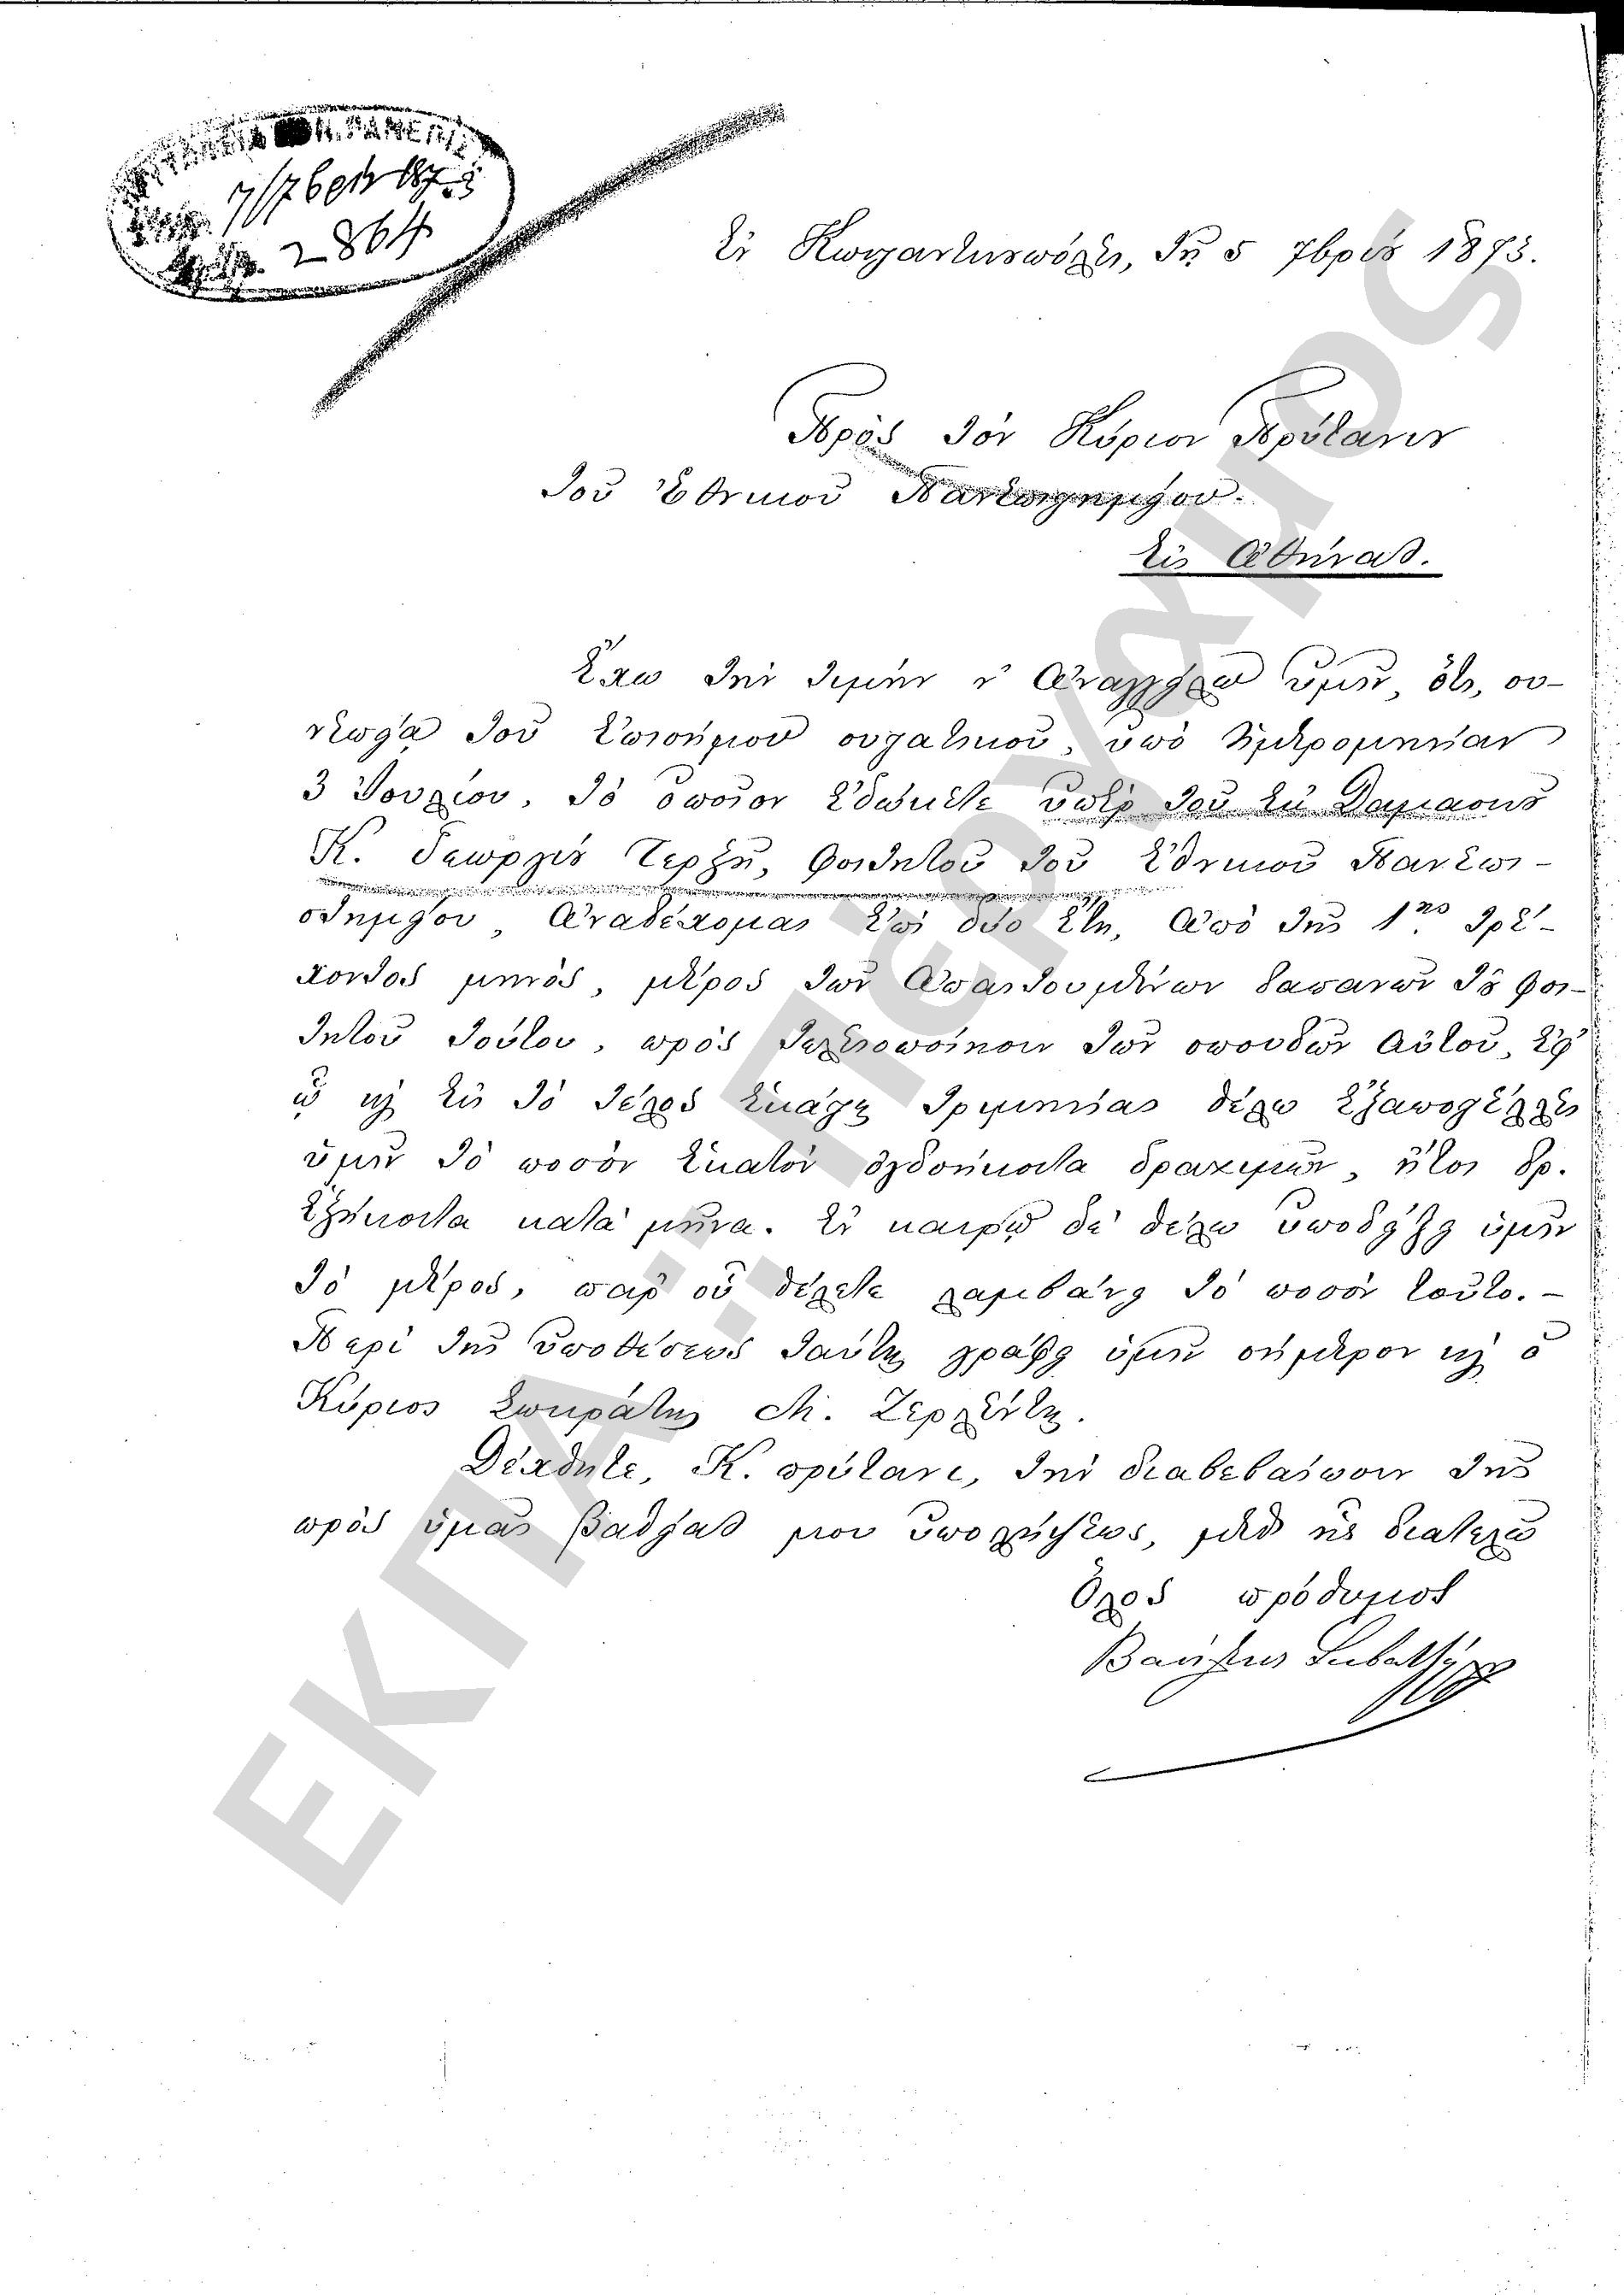 7/7βρίου 1873
2864
Ἐν Κωνσταντινουπόλει, τῇ 5 7βρίου 1873.
Πρὸς τὸν Κύριον Πρύτανιν
τοῦ Ἐθνικοῦ Πανεπιστημίου.
Εἰς Ἀθήνας.
Ἔχω τὴν τιμὴν ν' ἀναγγείλω ὑμῖν, ὅτι, συ-
νεπείᾳ τοῦ ἐπισήμου συστατικοῦ, ὑπὸ ἡμερομηνίαν
3 Ἰουλίου, τὸ ὁποῖον ἐδώκατε ὑπὲρ τοῦ ἐκ
Κ. Γεωργίου Τερζῆ, φοιτητοῦ τοῦ Ἐθνικοῦ Πανεπι-
στημίου, ἀναδέχομαι ἐπὶ δύο ἔτη, ἀπὸ τῆς 1ης τρέ-
χοντος μηνὸς, μέρος τῶν ἀπαιτουμένων δαπανῶν τοῦ φοι-
τητοῦ τούτου, πρὸς τελειοποίησιν τῶν σπουδῶν αὐτοῦ, ἐφ'
ᾧ καὶ εἰς τὸ τέλος ἑκάστης τριμηνίας θέλω ἐξαποστέλλει
ὑμῖν τὸ ποσὸν ἑκατὸν ὀγδοήκοντα δραχμῶν, ἤτοι δρ.
ἑξήκοντα κατὰ μῆνα. Ἐν καιρῷ δὲ θέλω ὑποδείξει ὑμῖν
τὸ μέρος, παρ' οὗ θέλετε λαμβάνει τὸ ποσὸν τοῦτο. –
Περὶ τῆς ὑποθέσεως ταύτης γράφει ὑμῖν σήμερον καὶ ὁ
Κύριος Σωκράτης Μ. Ζερλέντης.
Δέχθητε, Κ. πρύτανι, τὴν διαβεβαίωσιν τῆς
πρὸς ὑμᾶς βαθείας μου ὑπολήψεως, μεθ' ἧς διατελῶ
Ὅλος πρόθυμος
ΕΚΠΑ : Πέργαμος